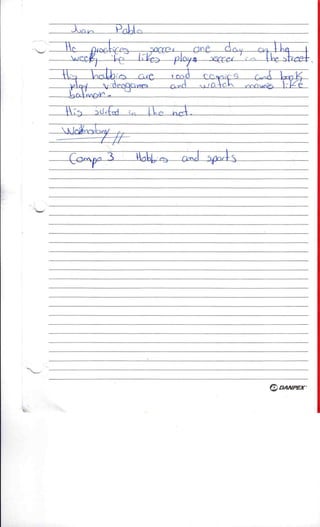 Juan Pablo
He practices soccer one day on the
week, he likes plays soccer in the street.
His hobbies are read comics and book
play videogames and watch movies like
batman.
His surfed in the net.
Wednesday //
Compo 3 Hobbies and sports
DANPEX